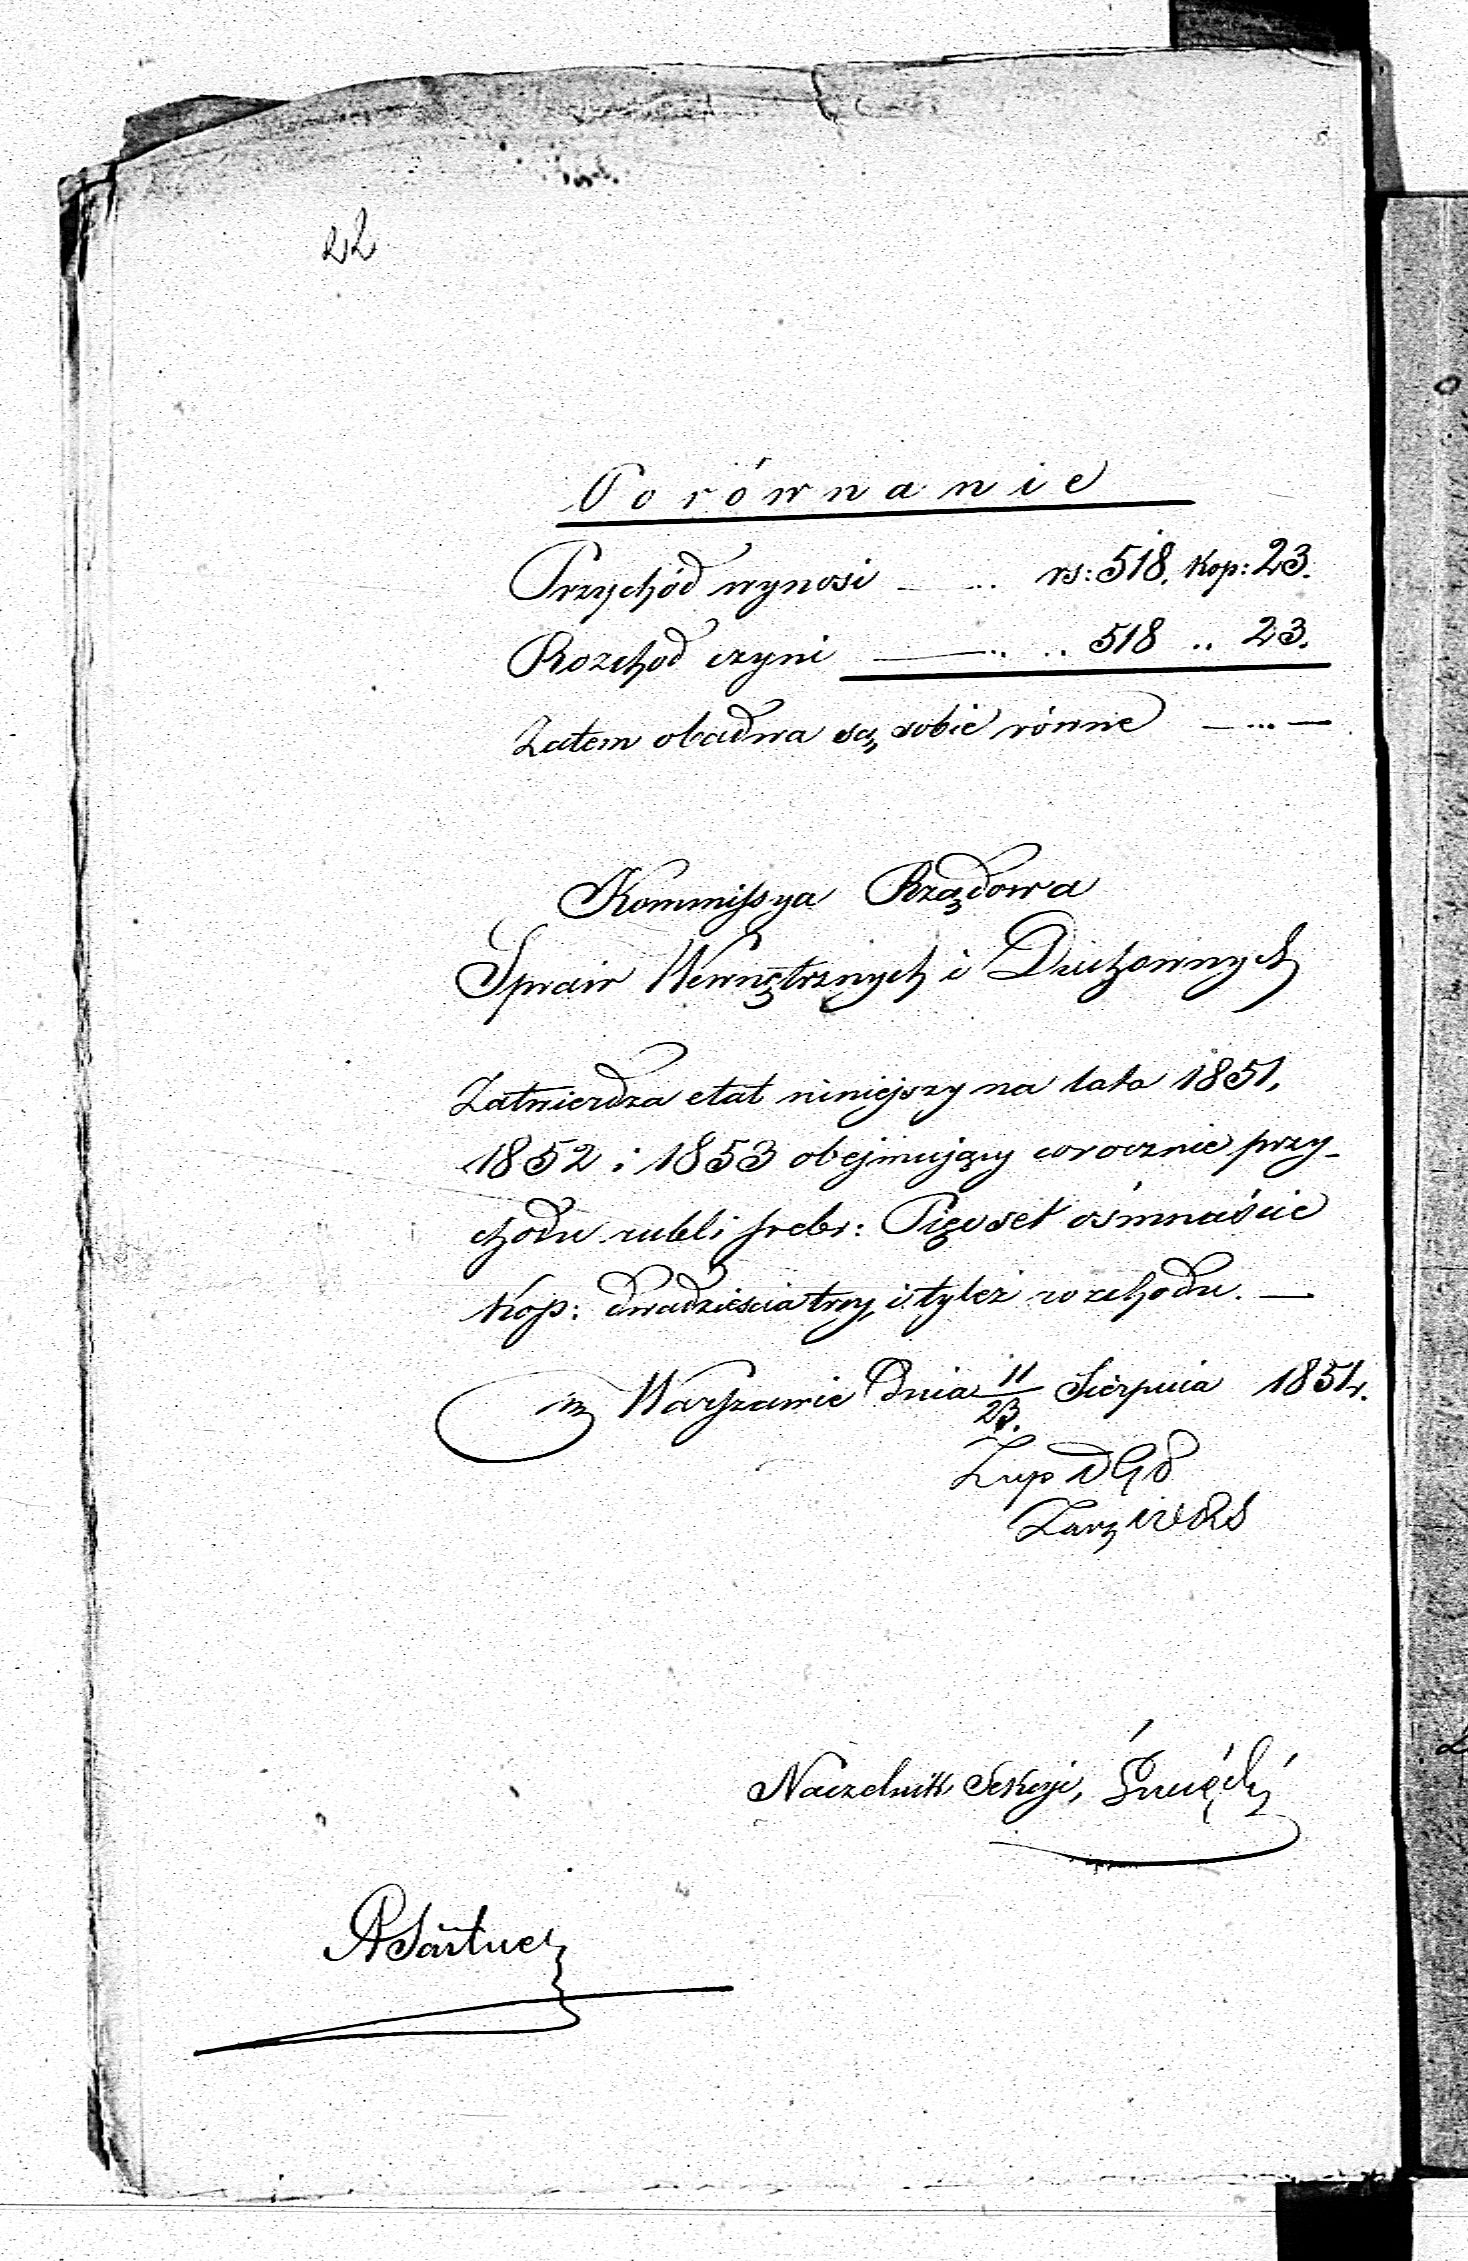 22
Porównanie
Przychód wynosi — .. rs: 518. kop: 23.
Rozchod czyni — .. .. 518 .. 23.
Zatem obadwa są sobie równe — ... —
Kommissya Rządowa
Spraw Wewnętrznych i Duchownych
Zatwierdza etat niniejszy na lata 1851,
1852 i 1853 obejmujący corocznie przy-
chodu rubli srebr: Pięćset ośmnaście
kop: dwadzieścia trzy, i tyleż rozchodu. —
w Warszawie Dnia 11/23. Sierpnia 1851 r.
Zup D G D
Naczelnik Sekcyi,